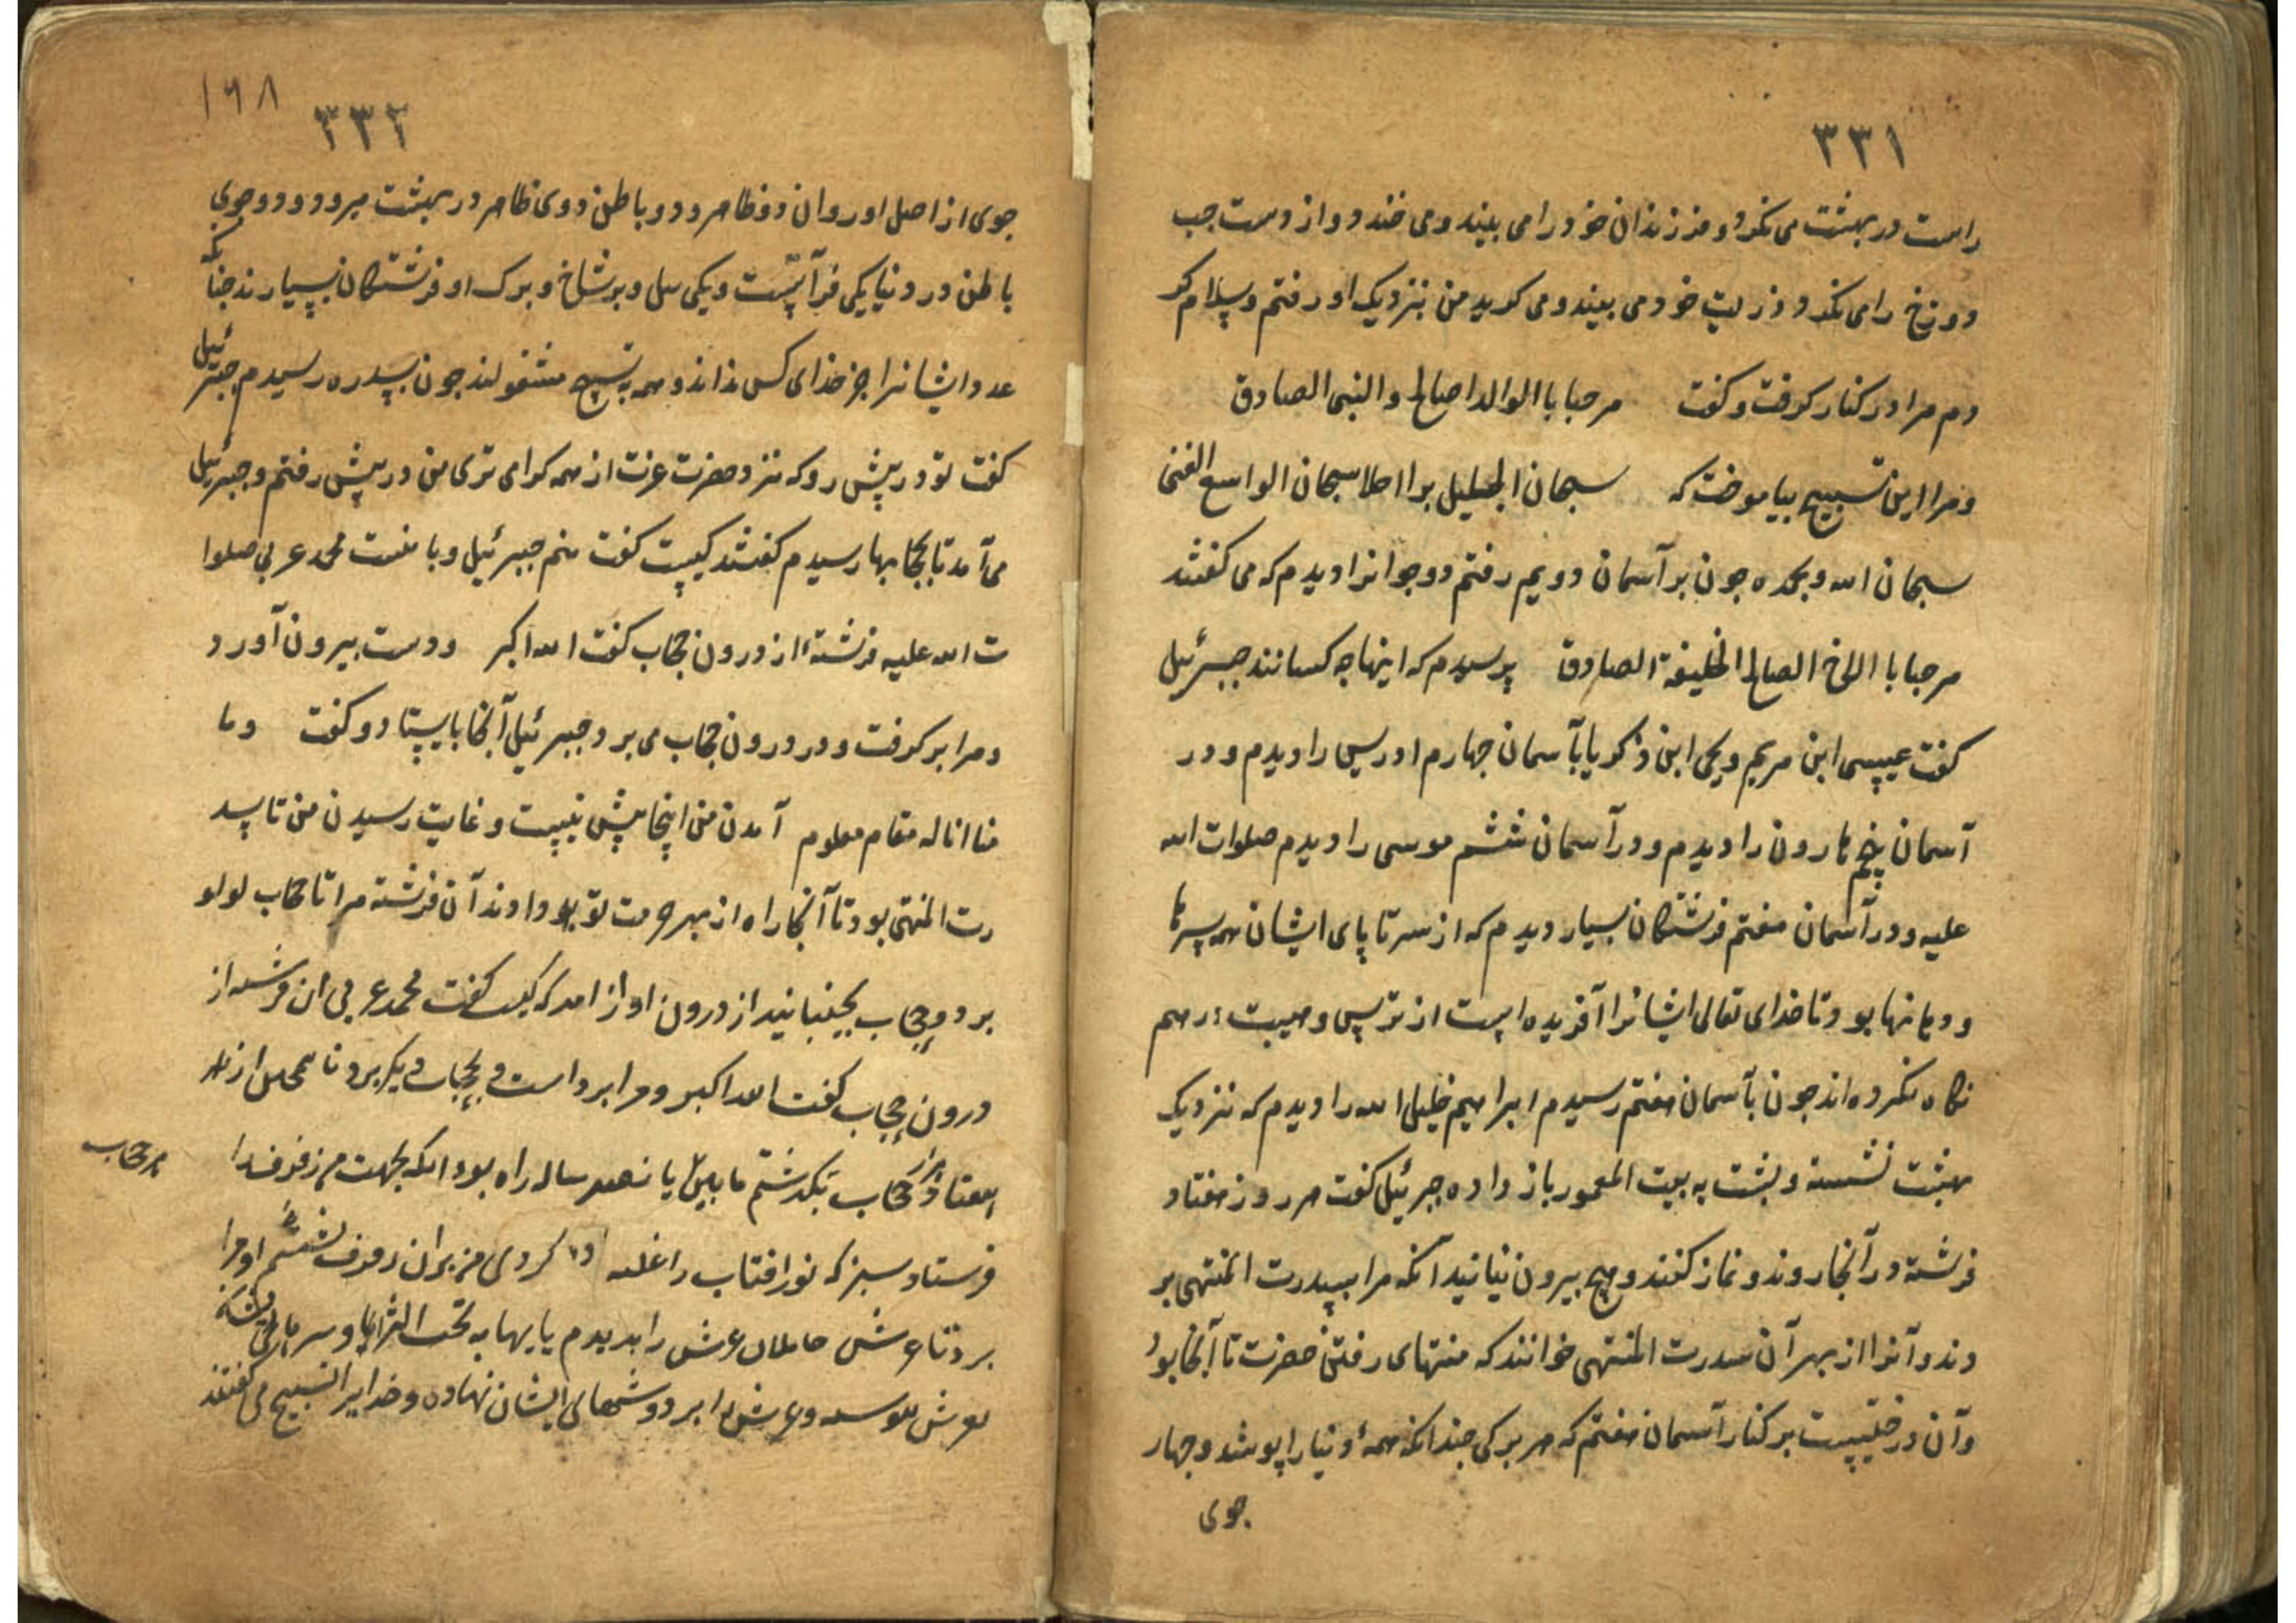 ۳۳۱
راست در بهشت می نکرد و فرزندان خود را می بیند و می خندد و از دست جب
دوزخ را می نکرد و ذریت خود می بیند و می کرید من بنزدیک او رفتم و سلام کر
دم مرا در کنار کرفت و کفت مرحبا بالوالد اصالح والنبی الصادق
و مرا این تسبیح بیاموخت که سبحان الجلیل سبحان الواسع الغنی
سبحان الله وبحمده جون بر آسمان دویم رفتم دو جوانرا دیدم که می کفتند
مرحبا با الاخ الصالح الخلیفة الصادق پرسیدم که اینها جه کسانند جبرئیل
کفت عیسی ابن مریم و یحیی ابن ذکریا بآسمان جهارم ادریس را دیدم و در
آسمان پنجم هارون را دیدم و در آسمان ششم موسی را دیدم صلوات الله
علیه و در آسمان هفتم فرشتکان بسیار دیدم که از سر تا پای ایشان همه سرها
و دهانها بود تا خدای تعالی ایشانرا آفریده است از ترس و هیبت در هم
نکاه نکرده اند جون بآسمان هفتم رسیدم ابراهیم خلیل الله را دیدم که نزدیک
بهشت نشسته و پشت به بیت المعمور باز داده جبرئیل کفت هر روز هفتاد
فرشته در آنجا روند و نماز کنند و هیچ بیرون نیانید آنکه مرا بسدرت المنتهی بر
دند و آنرا از بهر آن سدرت المنتهی خوانند که منتهای رفتن حضرت تا آنجا بود
و آن درختیست بر کنار آسمان هفتم که هر برکی جندانکه همهٔ دنیا را پوشد و جهار
جوی
۱۶۸
۳۳۲
جوی از اصل او روان دو ظاهر و دو باطن دوی ظاهر در بهشت میرود و دو جوی
باطن در دنیا یکی فراتست و یکی نیل و بر شاخ و برک او فرشتکان بسیارند جنانکه
عدد ایشانرا جز خدای کس نداند و همه بتسبیح مشغولند جون بسدره رسیدم جبرئیل
کفت تو در پیش رو که نزد حضرت عزت از همه کرامی تری من در پیش رفتم و جبرئیل
می آمد تا بحجابها رسیدم کفتند کیست کفت منم جبرئیل و با منست محمد عربی صلوا
ت الله علیه فرشتهٔ از درون حجاب کفت الله اکبر و دست بیرون آورد
و مرا بر کرفت و در درون حجاب می برد جبرئیل آنجا بایستاد و کفت وما
منا الا له مقام معلوم آمدن من اینجا بیش نیست و غایت رسیدن من تا سد
رت المنتهی بود تا آنجا راه از بهر حرمت تو بود دادند آن فرشته مرا تا حجاب لولو
برد و حجاب بجنبانید از درون اواز امد که کیست کفت محمد عربی ان فرشته از
درون حجاب کفت الله اکبر و مرا برداشت و بحجاب دیکر برد تا همجنین از
هفتاد هزار حجاب بکذشتم مابین پانصد ساله راه بود انکه بجهت من رفرف را
هر حجاب
فرستاد سبز که نور افتاب را غلبه کردی من بران رفرف نشستم او مرا
برد تا عرش حاملان عرش را بدیدم پایها به تحت الثرا و سرهای ایشان
بعرش پیوسته و عرش را بر دوشهای ایشان نهاده و خدایرا تسبیح می کفتند